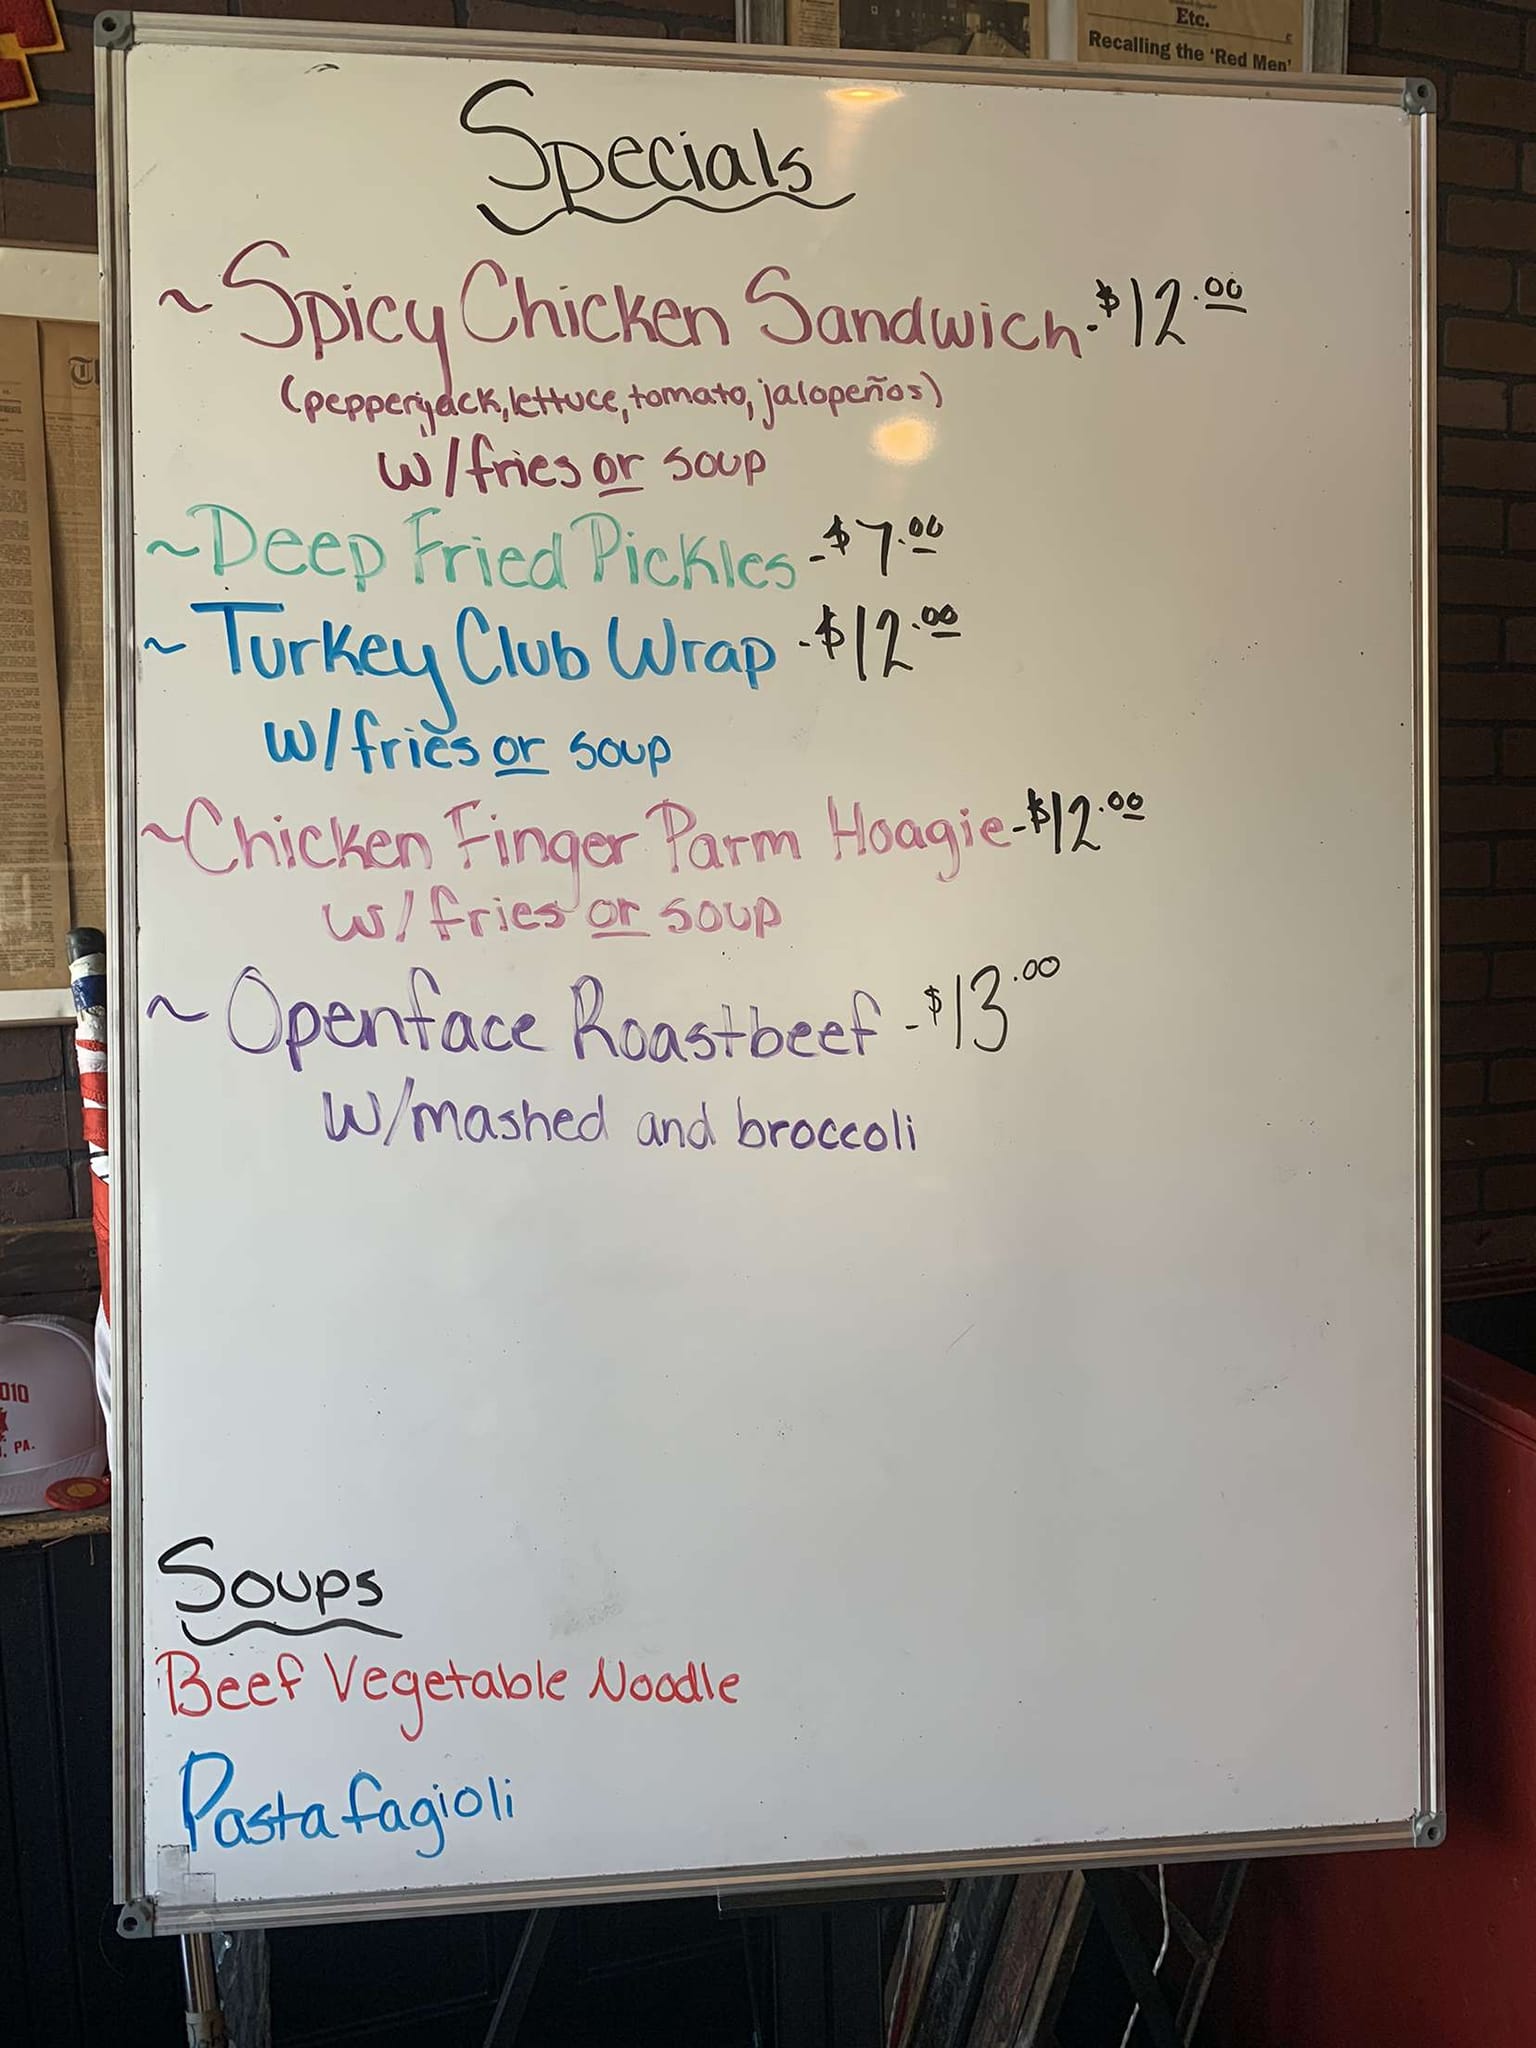 Etc.
Recalling the 'Red Men'
Specials
~ Spicy Chicken Sandwich - $12.00
(pepperjack, lettuce, tomato, jalopeños)
w/fries or soup
~ Deep Fried Pickles - $7.00
~ Turkey Club Wrap - $12.00
w/fries or soup
~ Chicken Finger Parm Hoagie - $12.00
w/fries or soup
~ Openface Roastbeef - $13.00
w/mashed and broccoli
010
PA.
Soups
Beef Vegetable Noodle
Pasta fagioli